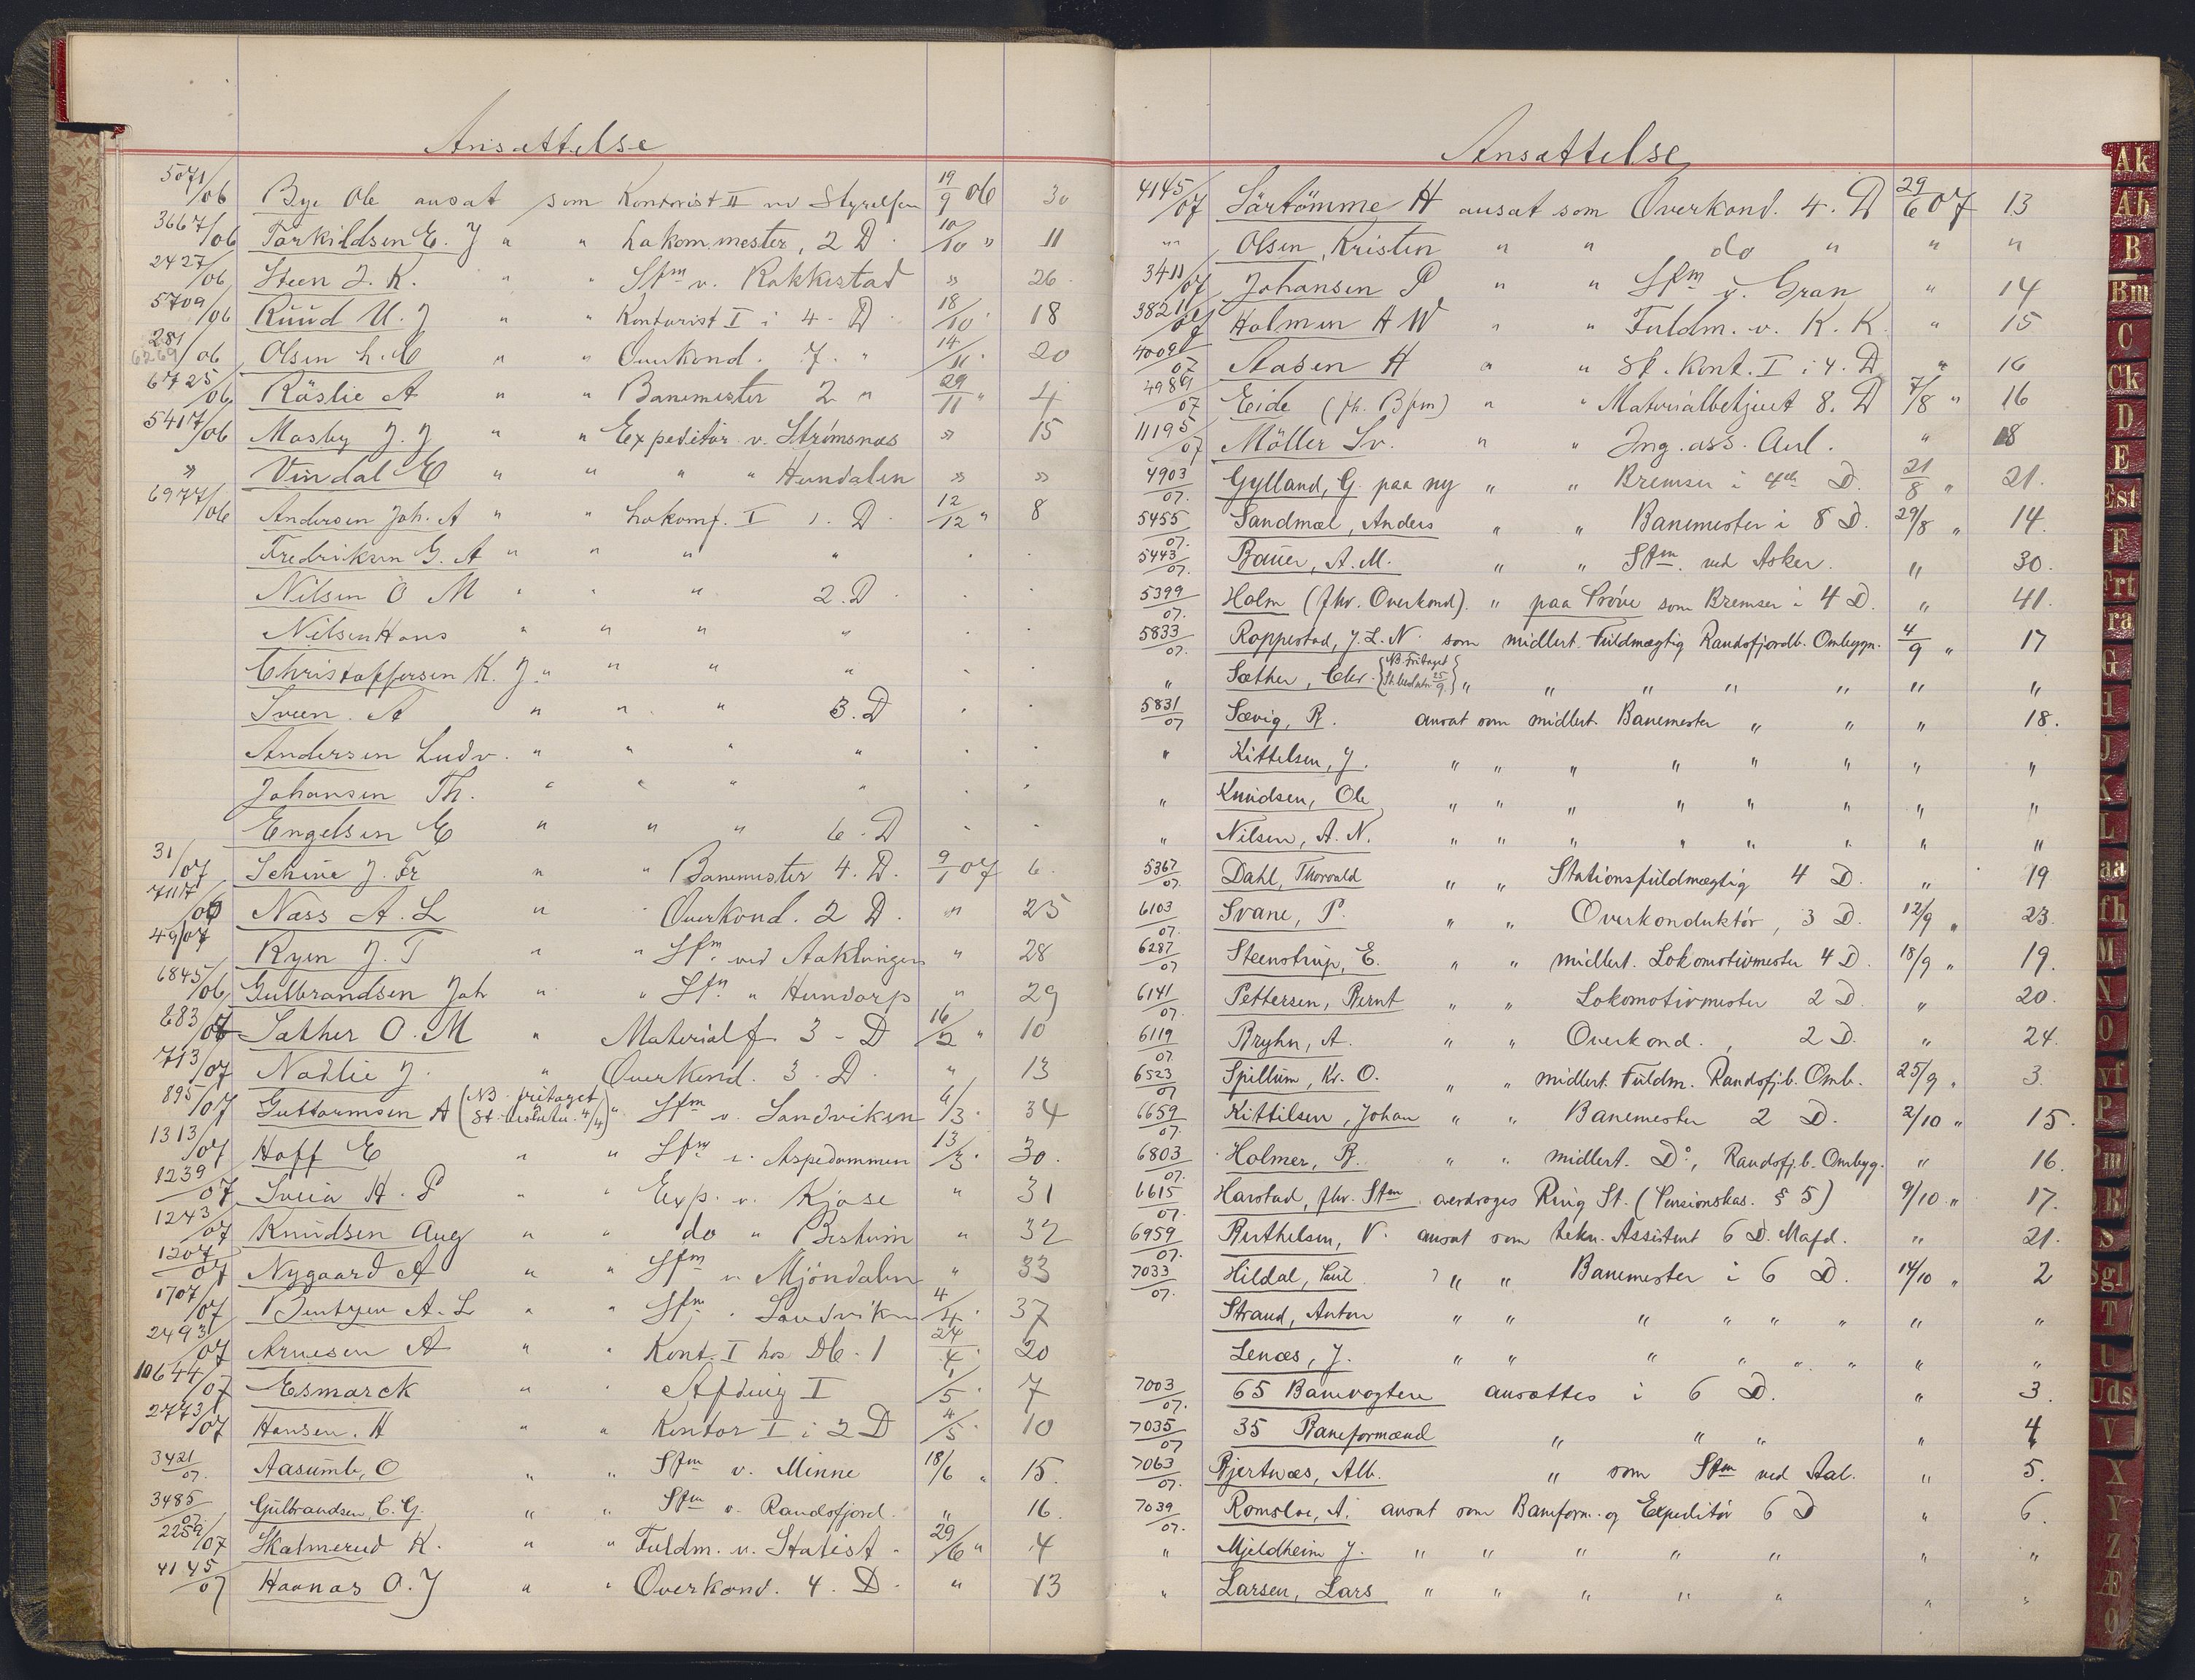 Ansættelse
5071/06 Bye Ole ansat som Kontorist II ved Styrelsen 19/9 06 30
3667/06 Torkildsen E. J " " Lokom.mester, 2 D. 10/10 " 11
2427/06 Steen J. K. " " Stm v. Rakkestad " 26
5709/06 Ruud U. J " " Kontorist I i 4. D. 18/10 " 18
281/6269/06 Olsen L. " " Overkond. 7. " 14/11 " 20
6725/06 Röslie A " " Banemester 2 " 29/11 " 4
5417/06 Mosby J. J " " Expeditör v. Strömsnæs " 15
" Vindal E " " " " Hundalen " "
6977/06 Andersen Joh. A " " Lokomf. I 1. D. 12/12 " 8
Fredriksen G. A " " " " " "
Nilsen O M " " " 2. D. " "
Nilsen Hans " " " " " "
Christoffersen K. J. " " " " " "
Sveen. A " " " 3. D " "
Andersen Ludv. " " " " " "
Johansen Th. " " " " " "
Engelsen E " " " 6. D " "
31/07 Schine J. Fr " " Banemester 4. D. 9/1 07 6
7117/06 Næss A. L " " Overkond. 2 D. " 25
49/07 Ryen J. T " " Stm. ved Aaklungen " 28
6845/06 Gulbrandsen Joh " " Stm " Hundorp " 29
683/07 Sæther O. M " Materialf. 3 - D 16/2 " 10
713/07 Nodlie J. " Overkond. 3. D. " 13
895/07 Guttormsen A (NB. fritaget St. beslutn. 4/4) " Stm v. Sandviken 6/3 " 34
1313/07 Hoff E " " Stm v. Aspedammen 13/3 " 30.
1239/07 Sveia H. P " " Exp. v. Kjose " 31
1243/07 Knudsen Aug " " do " Bestum " 32
1207/07 Nygaard A " " Stm v. Mjöndalen " 33
1707/07 Bentzen A. L " " Stm " Sandviken 4/4 " 37
2493/07 Arnesen A " " Kont. I hos Db. 1 24/4 " 20
10644/07 Esmarck " " Afding I 1/5 " 7
2773/07 Hansen. H " " Kontor I i 2 D 4/5 " 10
3421/07. Aasumb, O " " Stm v. Minne 18/6 " 15.
3485/07. Gulbrandsen, C. G. " " Stm v. Randsfjord. " 16.
2259/07 Skalmerud K. " " Fuldm. v. Statist. 29/6 " 4
4145/07 Haanas O. J " " Overkond. 4. D. " 13
Ansættelse
4145/07 Sörtömme H ansat som Overkond. 4. D 29/6 07 13
" Olsen, Kristen " " do " " "
3411/07 Johansen P " " Stm v. Gran " 14
3821/07 Holmen H W " " Fuldm. v. K. K. " 15
4009/07 Aasen H " " St. Kont. I i 4. D " 16
4989/07 Eide (fh. Bfm) " " Materialbetjent 8. D 7/8 " 16
11195/07 Möller Sv. " " Ing. ass. Anl. " 18
4903/07. Gylland, G. paa ny " " Bremser i 4de D. 21/8 " 21.
5455/07. Sandmæl, Anders " " Banemester i 8 D. 29/8 " 14.
5443/07. Bauer, A. M. " " Stm. ved Asker. " 30.
5399/07. Holm (fhv. Overkond). " paa Prøve som Bremser i 4 D. " 41.
5833/07. Roppestad, J. L. N. som midlert. Fuldmægtig Randsfjordb. Ombyggn. 4/9 " 17
" Sæther, Chr. {NB. Fritaget St. beslutn. 25/9} " " " " " " "
5831/07 Sævig, R. ansat som midlert. Banemester " " " 18.
" Kittelsen, J. " " " " " " " "
" Knudsen, Ole " " " " " " " "
" Nilsen, A. N. " " " " " " " "
5367/07. Dahl, Thorvald " " Stationsfuldmægtig 4 D. " 19
6103/07. Svane, P. " " Overkonduktör, 3 D. 12/9 " 23.
6287/07 Steenstrup, E. " " midlert. Lokomotivmester 4 D. 18/9 " 19.
6141/07. Pettersen, Bernt " " Lokomotivmester 2 D. " 20.
6119/07. Bryhn, A. " " Overkond., 2 D. " 24.
6523/07 Spillum, Kr. O. " " midlert. Fuldm. Randsfj.b. Omb. 25/9 " 3.
6659/07. Kittilsen, Johan " " Banemester 2 D. 2/10 " 15.
6803/07. Holmer, R. " " midlert. Do, Randsfj.b. Ombyg. " 16.
6615/07. Harstad, fhv. Stm. overdrages Ring St. (Pensionskas. § 5) 9/10 " 17.
6959/07. Berthelsen, V. ansat som tekn. Assistent 6 D. Mafd. " 21.
7033/07. Hildal, Paul " " Banemester i 6 D. 14/10 " 2
Strand, Anton " " " " " " " "
Lenæs, J. " " " " " " " "
7003/07. 65 Banevogtere ansættes i 6 D. " 3.
7035/07 35 Baneformænd " " " " 4
7063/07. Bjertnæs, Alb. " som Stm ved Aal. " 5.
7039/07. Romsloe, A. ansat som Baneform. og Expeditör 6 D " 6.
" Mjeldheim J. " " " " " " "
" Larsen, Lars " " " " " " "
Ak
Ab
B
Bm
C
Ck
D
E
Est
F
Frt
ra
G
H
J
K
L
aa
fh
M
N
O
vf
P
Pm
R
S
Sgl
T
U
Uds
V
X
Y
Z
Æ
Ø